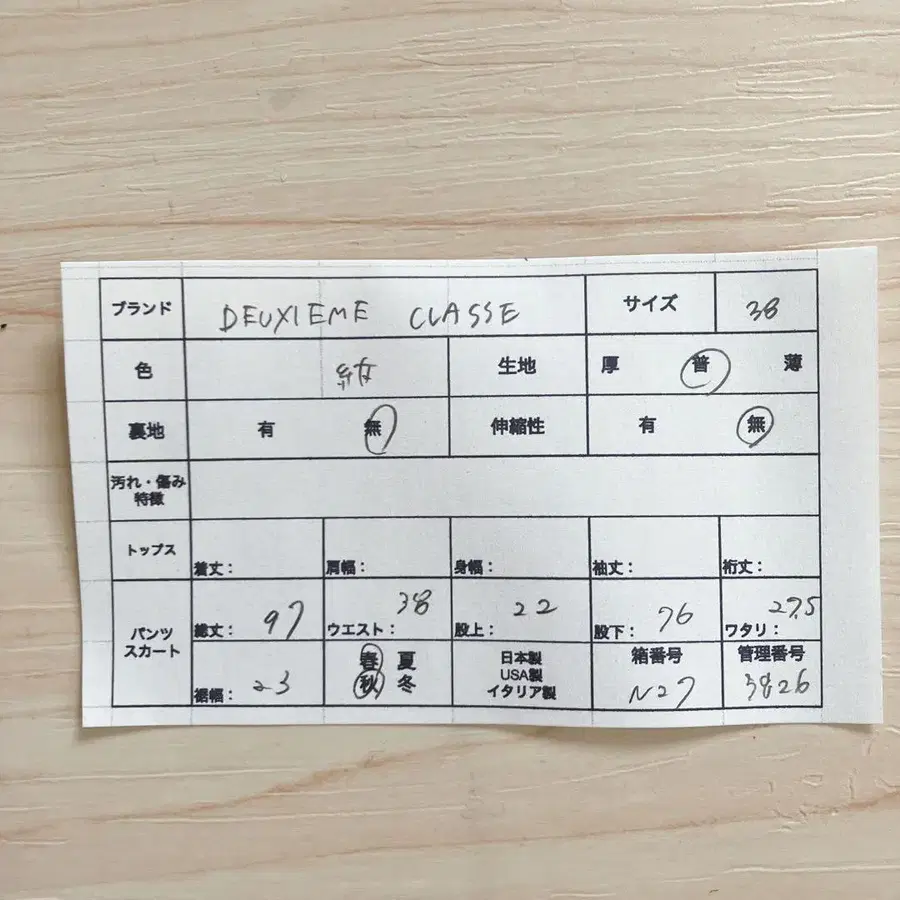 ブランド DEUXIEME CLASSE サイズ 38
色 生地 厚 普 薄
裏地 有 無 伸縮性 有 無
汚れ・傷み
特徴
トップス 着丈: 肩幅: 身幅: 袖丈: 裄丈:
パンツ
スカート
総丈: 97 ウエスト: 38 股上: 22 股下: 76 ワタリ: 27.5
裾幅: 23
春 夏
秋 冬
日本製
USA製
イタリア製
箱番号
N27
管理番号
3826